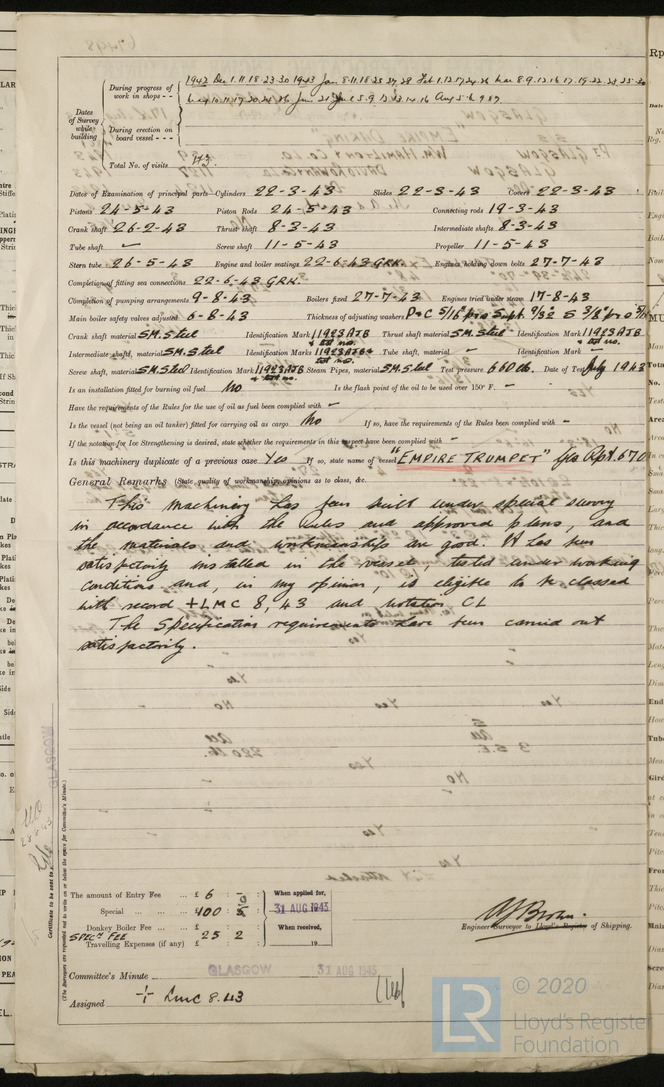 Dates of Survey while building
During progress of work in shops - -
1942 Dec 1.11.18.23.30 1943 Jan 8.11.18 25 27,28 Feb 1.12.17.24.26 Mar 8.9.12.16.17.19.22.23.25.30
During erection on board vessel - - -
Total No. of visits
Dates of Examination of principal parts—Cylinders 22-3-43 Slides 22-3-43 Covers 22-3-43
Pistons 24-5-43 Piston Rods 24-5-43 Connecting rods 19-3-43
Crank shaft 26-2-43 Thrust shaft 8-3-43 Intermediate shafts 8-3-43
Tube shaft ✓ Screw shaft 11-5-43 Propeller 11-5-43
Stern tube 26-5-43 Engine and boiler seatings 22-6-43 GRK. Engines holding down bolts 27-7-43
Completion of fitting sea connections 22-6-43 GRK.
Completion of pumping arrangements 9-8-43 Boilers fixed 27-7-43 Engines tried under steam 17-8-43
Main boiler safety valves adjusted 6-8-43 Thickness of adjusting washers P&C 5/16
Crank shaft material S.M. Steel Identification Mark 11923 AJB & tot no. Thrust shaft material S.M. Steel Identification Mark 11923 AJB & tot no.
Intermediate shafts, material S.M. Steel Identification Marks 11923 AJB & tot no. Tube shaft, material — Identification Mark —
Screw shaft, material S.M. Steel Identification Mark 11923 AJB & tot no. Steam Pipes, material S.M. Steel Test pressure 660 lb. Date of Test July 1943
Is an installation fitted for burning oil fuel No Is the flash point of the oil to be used over 150° F. —
Have the requirements of the Rules for the use of oil as fuel been complied with —
Is the vessel (not being an oil tanker) fitted for carrying oil as cargo No If so, have the requirements of the Rules been complied with —
If the notation for Ice Strengthening is desired, state whether the requirements in this respect have been complied with —
Is this machinery duplicate of a previous case Yes If so, state name of vessel "EMPIRE TRUMPET" Gls Rpt. 670
General Remarks (State quality of workmanship, opinions as to class, &c.
This machinery has been built under special survey
in accordance with the rules and approved plans, and
the materials and workmanship are good. It has been
satisfactorily installed in the vessel, tested under working
conditions and, in my opinion, is eligible to be classed
with record +LMC 8,43 and notation CL
The Specification requirements have been carried out
satisfactorily.
GLASGOW
Certificate to be sent to
(The Surveyors are requested not to write on or below the space for Committee's Minute.)
The amount of Entry Fee ... £ 6 : - : When applied for,
Special ... ... ... £ 400 : 5 : 31 AUG 1943
Donkey Boiler Fee ... £ : : When received,
SPECn FEE £ 25 : 2
Travelling Expenses (if any) £ : : 19
Engineer Surveyor to Lloyd's Register of Shipping.
Committee's Minute GLASGOW 31 AUG 1943
Assigned + LMC 8.43
LR
© 2020
Lloyd's Register
Foundation